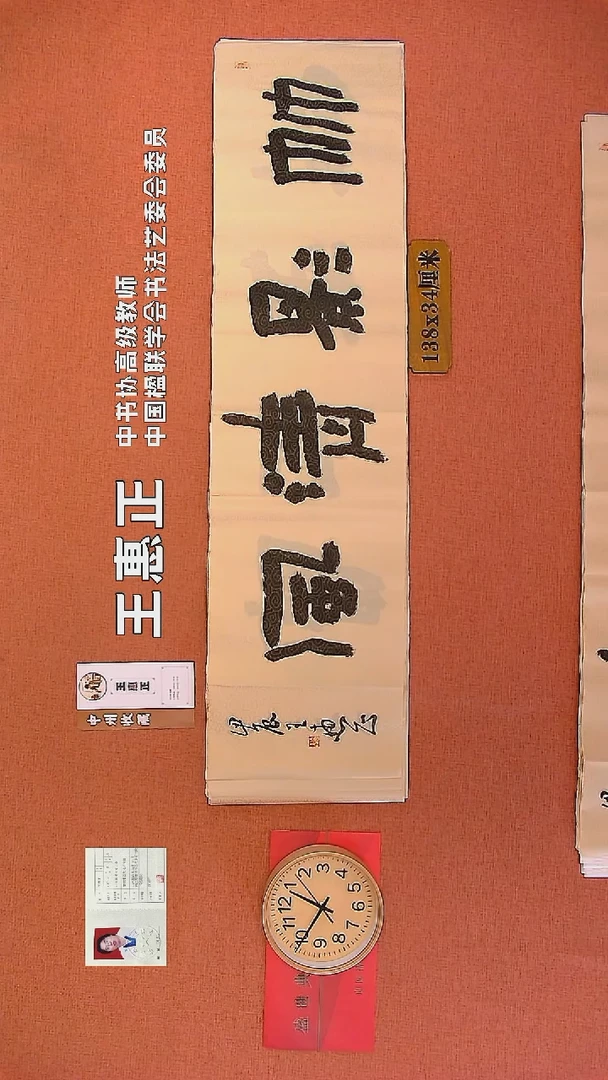 中书协高级教师
中国楹联学会书法艺委会委员
王惠正
竹影清風
甲辰王惠正
138x34厘米
王惠正
中州收藏
12 1 2 3 4 5 6 7 8 9 10 11